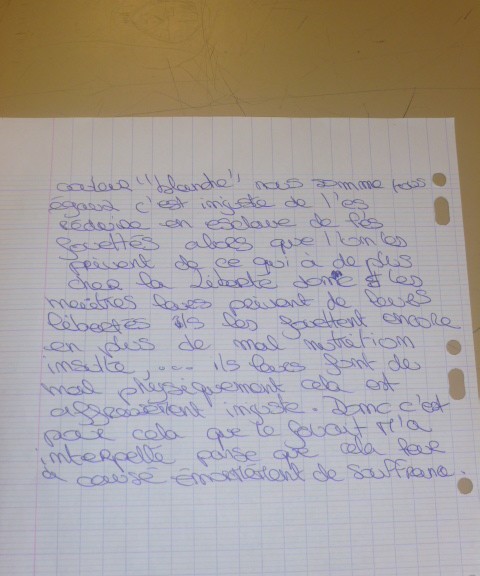 couleur "blanche" nous somme tous
égaux c'est injuste de l'es
réduire en esclave de les
fouettés alors que l'ion les
privent de ce qui à de plus
cher la Liberté donc les
maîtres leurs privent de leurs
libertés ils les fouettent encore
en plus de mal nutrition
insulte ,... ils leurs font du
mal physiquement cela est
affreusement injuste. Donc c'est
pour cela que le fouet m'a
interpellé parse que cela leur
à causé énormément de souffrance.